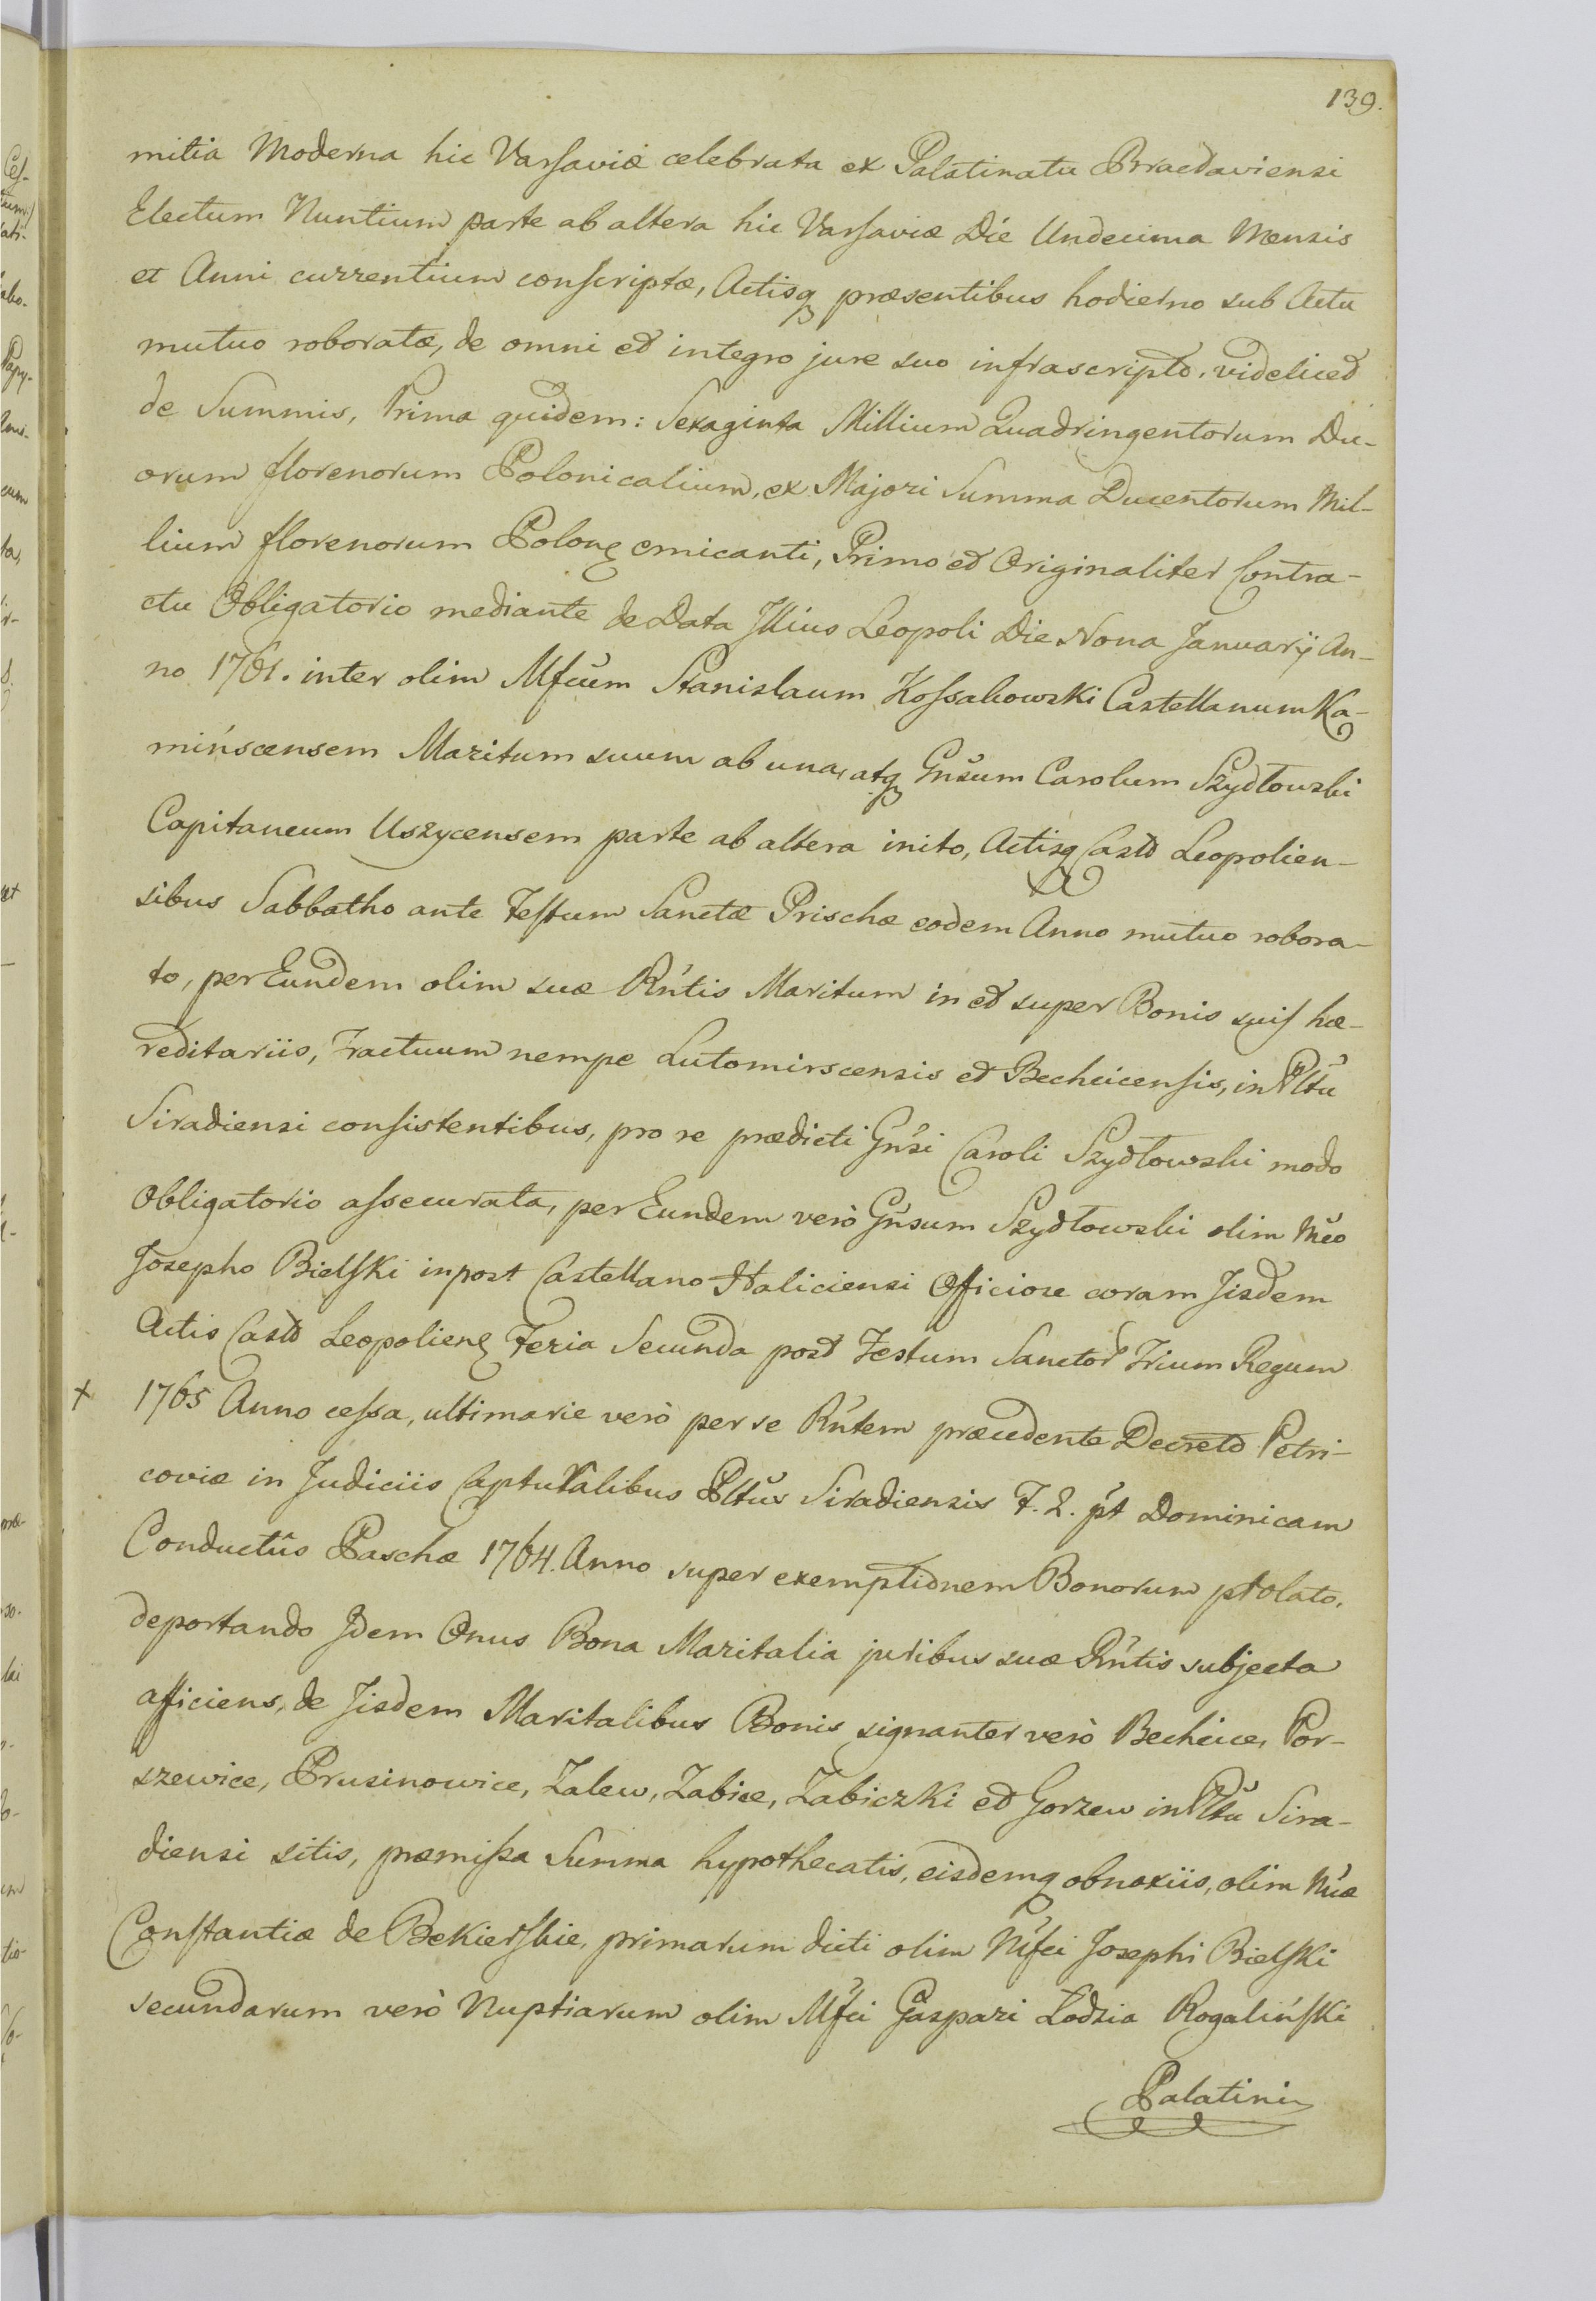 139.
mitia Moderna hic Varsaviæ celebrata ex Palatinatu Bracdaviensi
Electum Nuntium parte ab altera hic Varsaviæ Die Undecima Mensis
et Anni currentium conscriptæ, Actisq præsentibus hodierno sub Actu
mutuo roboratæ, de omni et integro jure suo infrascripto, videlicet
de Summis, Prima quidem: Sexaginta Millium Quadringentorum Du-
orum florenorum Polonicalium, ex Majori Summa Ducentorum Mil-
lium florenorum Polonę emicanti, Primo et Originaliter Contra-
ctu Obligatorio mediante de Data Illius Leopoli Die Nona Januarij An-
no 1761. inter olim Mfcum Stanislaum Kossakowski Castellanum Ka-
mińscensem Maritum suum ab una, atq Gnsum Carolum Szydłowski
Capitaneum Uszycensem parte ab altera inito, Actisq Castr Leopolien-
sibus Sabbatho ante Festum Sanctæ Prischæ eodem Anno mutuo robora-
to, per Eundem olim suæ Rntis Maritum in et super Bonis suis hæ-
reditariis, Tractuum nempe Lutomirscensis et Bechcicensis, in Pltu
Siradiensi consistentibus, pro re prædicti Gnsi Caroli Szydłowski modo
Obligatorio assecurata, per Eundem verò Gnsum Szydłowski olim Mco
Josepho Bielski inpost Castellano Haliciensi Officiose coram Iisdem
Actis Castr Leopolienę Feria Secunda post Festum Sanctor Trium Regum
+ 1765 Anno cessa, ultimarie verò per se Rntem præcedente Decreto Petri-
coviæ in Judiciis Capturalibus Pltus Siradiensis F. 2. pt Dominicam
Conductûs Paschæ 1764. Anno super exemptionem Bonorum ptolato,
deportando Idem Onus Bona Maritalia juribus suæ Rntis subjecta
afficiens, de Iisdem Maritalibus Bonis signanter verò Bechcice, Por-
szewice, Prusinowice, Zalew, Zabice, Zabiczki et Gorzew in Pltu Sira-
diensi sitis, præmissa Summa hypothecatis, eisdemq obnoxiis, olim Mcæ
Constantiæ de Bekierskie, primarum dicti olim Mfci Josephi Bielski
secundarum verò Nuptiarum olim Mfci Gaspari Lodzia Rogaliński
Palatini